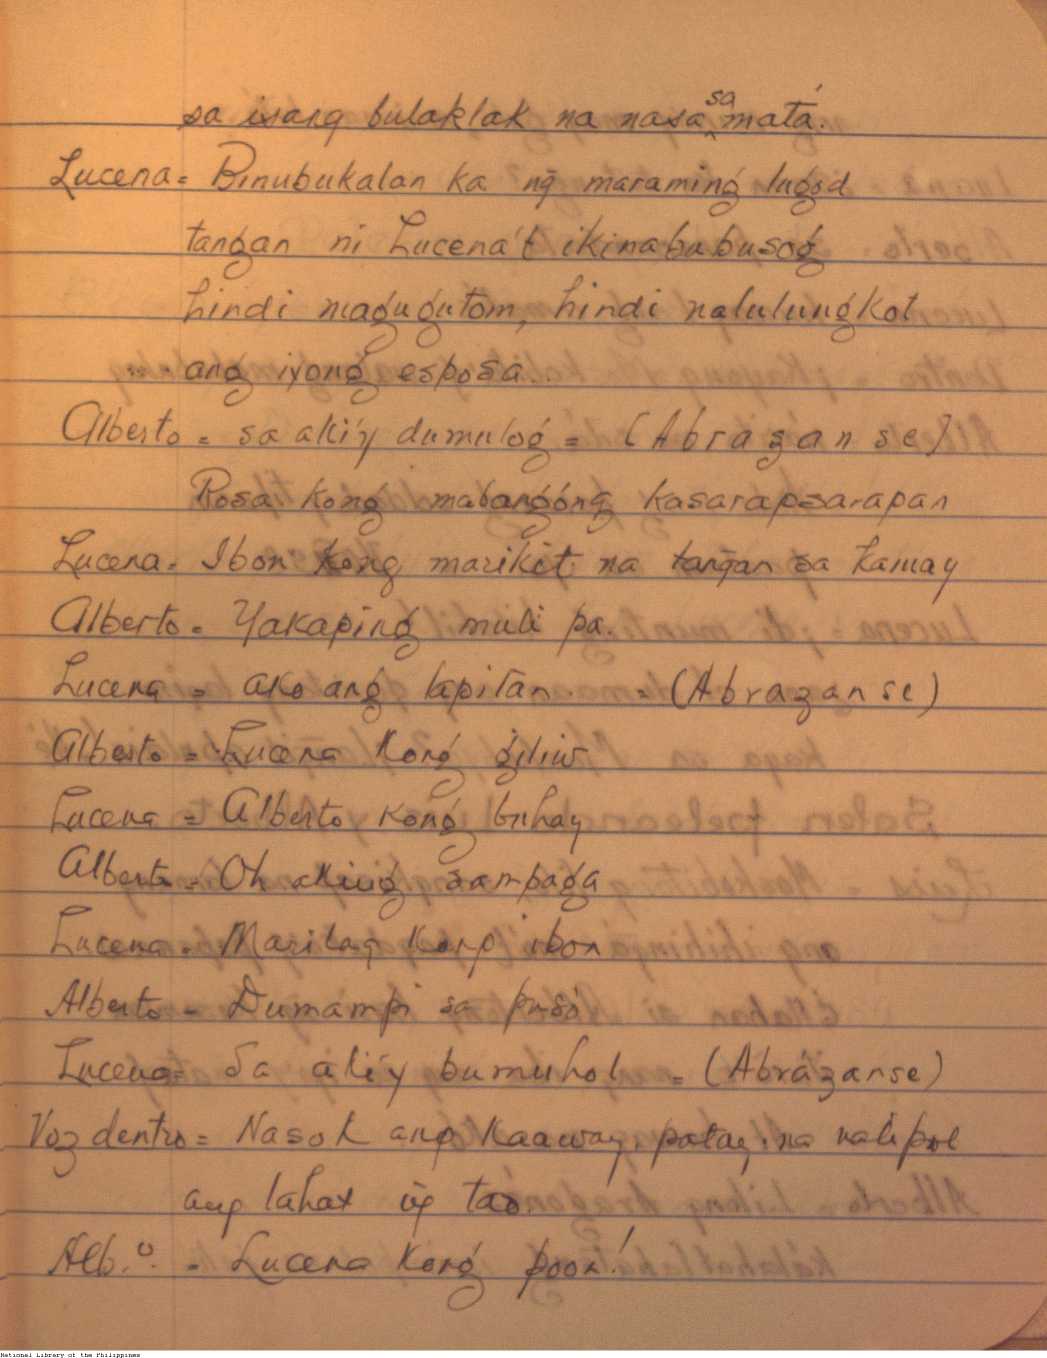 sa isang bulaklak na nasa sa matá.
Lucena = Binubukalan ka ng̃ maraming lugod
tangan ni Lucena't ikinabubusog
hindi magugutom, hindi nalulungkot
ang iyong esposa.
Alberto = sa aki'y dumulog = (Abrazanse)
Rosa kong mabangóng kasarapsarapan
Lucena = Ibon kong marikit na tangan sa kamay
Alberto = Yakaping muli pa.
Lucena = ako ang lapitan. = (Abrazanse)
Alberto = Lucena kong giliw
Lucena = Alberto kong buhay
Alberto = Oh aking sampaga
Lucena = Marilag kong ibon
Alberto = Dumampi sa pusó
Lucena = Sa aki'y bumuhol = (Abrázanse)
Voz dentro = Nasok ang kaaway, patay na nalipol
ang lahat ng̃ tao.
Alb.º = Lucena kong poon!
National Library of the Philippines